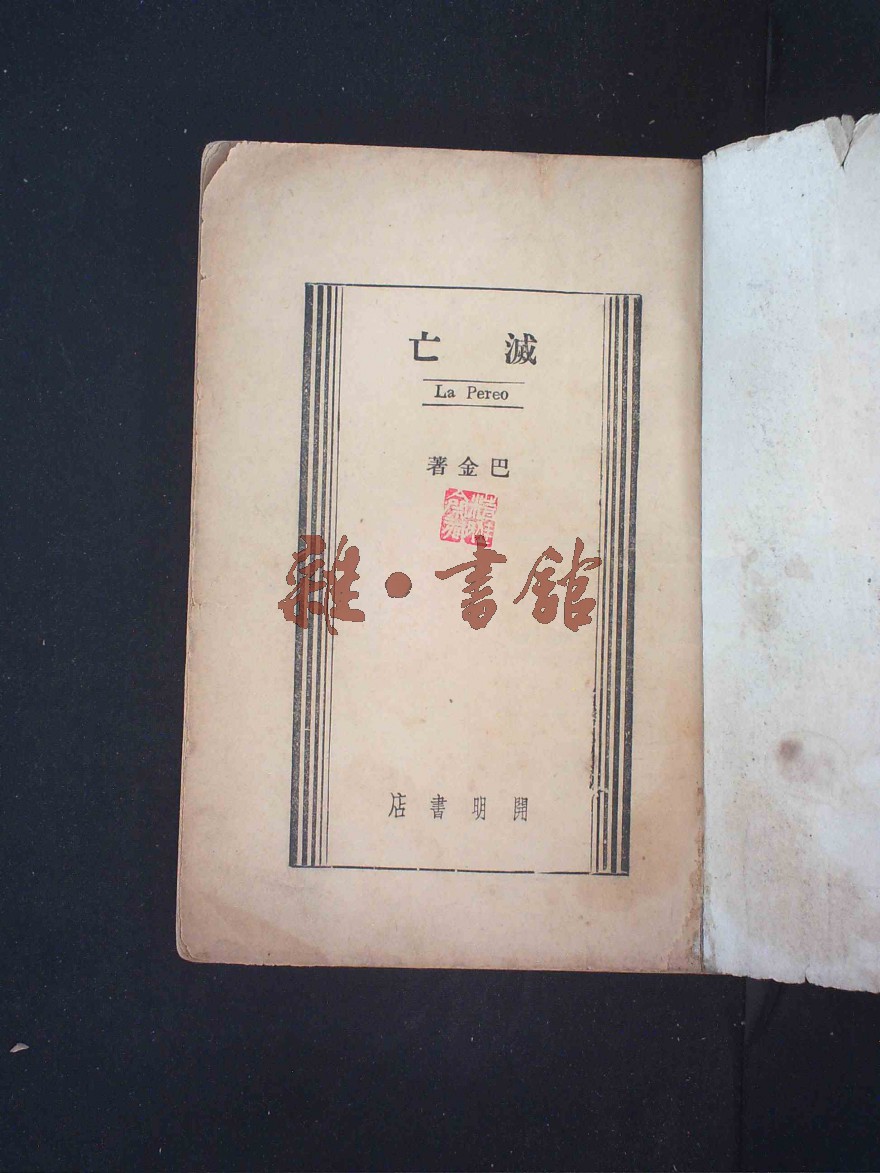 滅亡
La Pereo
巴金著
雜·書舘
開明書店